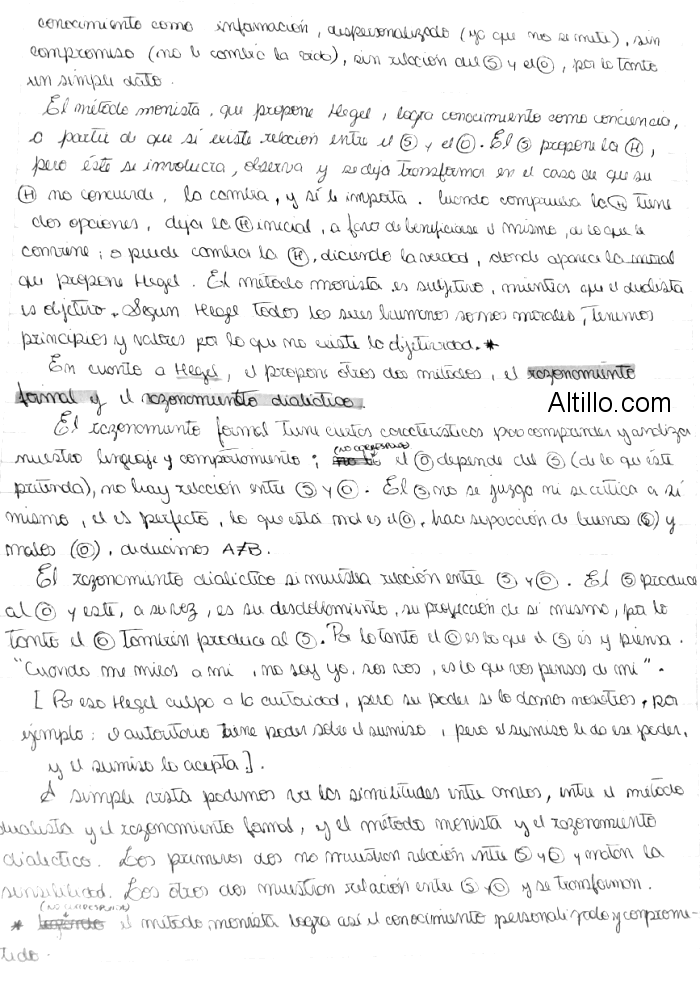 conocimiento como información, despersonalizado (ya que no se mete), sin
compromiso (no le cambió la vida), sin relación del Ⓢ y el Ⓞ, por lo tanto
un simple dato.
El método monista, que propone Hegel, logra conocimiento como conciencia,
a partir de que sí existe relación entre el Ⓢ y el Ⓞ. El Ⓢ propone la Ⓗ,
pero éste se involucra, observa y se deja transformar en el caso de que su
Ⓗ no concuerde, la cambia, y sí le importa. Cuando comprueba la Ⓗ tiene
dos opciones, deja la Ⓗ inicial, a favor de beneficiarse él mismo, a lo que le
conviene; o puede cambiar la Ⓗ, diciendo la verdad, donde aparece la moral
que propone Hegel. El método monista es subjetivo, mientras que el dualista
es objetivo. Según Hegel todos los seres humanos somos morales, tenemos
principios y valores por lo que no existe la objetividad. *
En cuanto a Hegel, él propone otros dos métodos, el razonamiento
formal y el razonamiento dialéctico.
Altillo.com
El razonamiento formal tiene ciertas características para comprender y analizar
nuestro lenguaje y comportamiento; el Ⓞ depende del Ⓢ (de lo que éste
pretenda), no hay relación entre Ⓢ y Ⓞ. El Ⓢ no se juzga ni se critica a sí
mismo, él es perfecto, lo que está mal es el Ⓞ, hace separación de buenos (Ⓢ) y
malos (Ⓞ), deducimos A≠B.
El razonamiento dialéctico si muestra relación entre Ⓢ y Ⓞ. El Ⓢ produce
al Ⓞ y este, a su vez, es su desdoblamiento, su proyección de si mismo, por lo
tanto el Ⓞ también produce al Ⓢ. Por lo tanto el Ⓞ es lo que el Ⓢ es y piensa.
"Cuando me miras a mi, no soy yo, sos vos, es lo que vos pensas de mi".
[Por eso Hegel culpa a la autoridad, pero su poder se lo damos nosotros, por
ejemplo: el autoritario tiene poder sobre el sumiso, pero el sumiso le da ese poder,
y el sumiso lo acepta].
A simple vista podemos ver las similitudes entre ambos, entre el método
dualista y el razonamiento formal, y el método monista y el razonamiento
dialéctico. Los primeros dos no muestran relación entre Ⓢ y Ⓞ y matan la
sensibilidad. Los otros dos muestran relación entre Ⓢ y Ⓞ y se transforman.
* (NO CORRESPONDE) el método monista logra así el conocimiento personalizado y comprome-
tido.